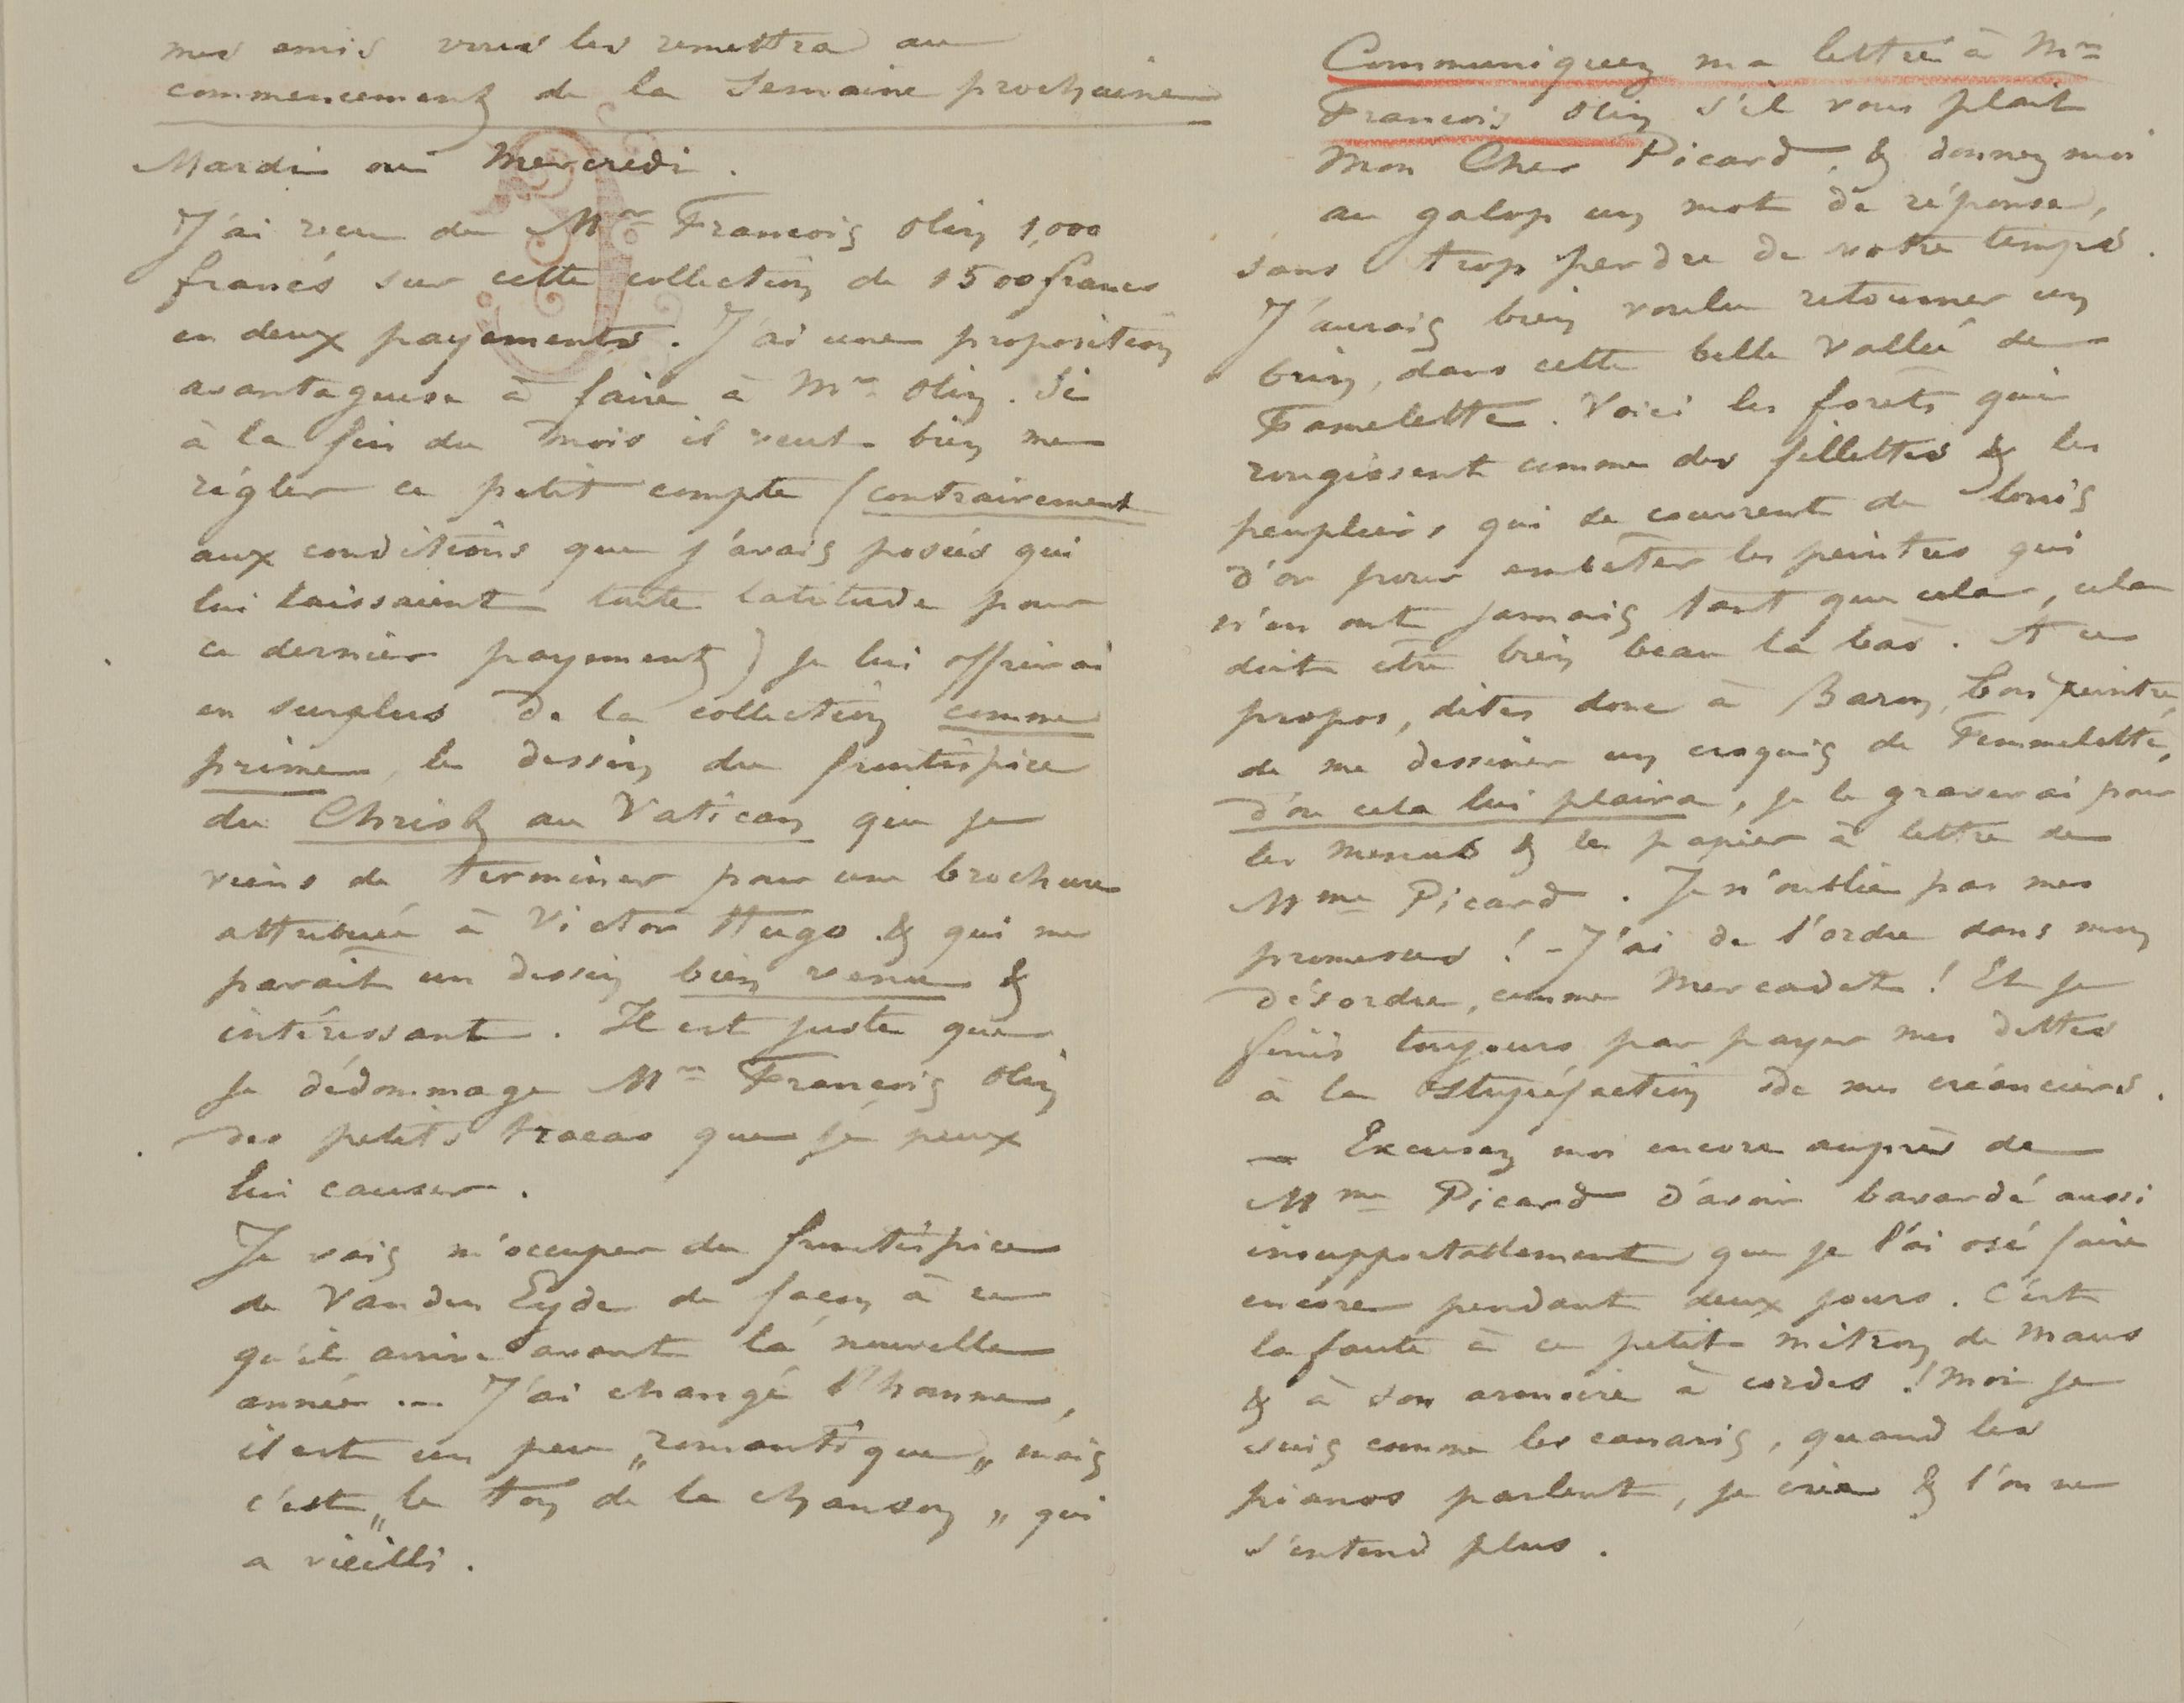 mes amis vous les remettra au
commencement de la Semaine prochaine
Mardi ou Mercredi.
J'ai reçu de Mr François Olin 1,000
francs sur cette collection de 1500 francs
en deux payements. J'ai une proposition
avantageuse à faire à Mr Olin. Si
à la fin du mois il veut bien me
régler ce petit compte (contrairement
aux conditions que j'avais posées qui
lui laissaient toute latitude pour
ce dernier payement) je lui offrirai
en surplus de la collection comme
prime, le dessin du frontispice
du Christ au Vatican que je
viens de terminer pour une brochure
attribuée à Victor Hugo & qui me
parait un dessin bien venu &
intéressant. Il est juste que
je dédommage Mr François Olin
des petits tracas que je peux
lui causer.
Je vais m'occuper du frontispice
de Vanden Eyde de façon à ce
qu'il arrive avant la nouvelle
année ... J'ai changé l'homme,
il est un peu „romantique„ mais
c'est „le ton de la chanson„ qui
a vieilli.
Communiquez ma lettre à Mr
François Olin s'il vous plait
Mon Cher Picard, & donnez moi
au galop un mot de réponse,
sans trop perdre de votre temps.
J'aurais bien voulu retourner un
brin, dans cette belle Vallée de
Famelette. Voici les forets qui
rougissent comme des fillettes & les
peupliers qui se couvrent de louis
d'or pour embêter les peintres qui
n'en ont jamais tant que cela, cela
doit être bien beau la bas. A ce
propos, dites donc à Baron, bon peintre,
de me dessiner un croquis de Femmelette,
d'ou cela lui plaira, je le graverai pour
les menus & le papier à lettre de
Mme Picard. Je n'oublie pas mes
promesses! – J'ai de l'ordre dans mon
désordre, comme Mercadet! Et je
finis toujours par payer mes dettes
à la stupéfaction de mes créanciers.
— Excusez moi encore auprès de
Mme Picard d'avoir bavardé aussi
insupportablement que je l'ai osé faire
encore pendant deux jours. C'est
la faute à ce petit mitron de Maus
& à son armoire à cordes! Moi je
suis comme les canaris, quand les
pianos parlent, je crie & l'on ne
s'entend plus.